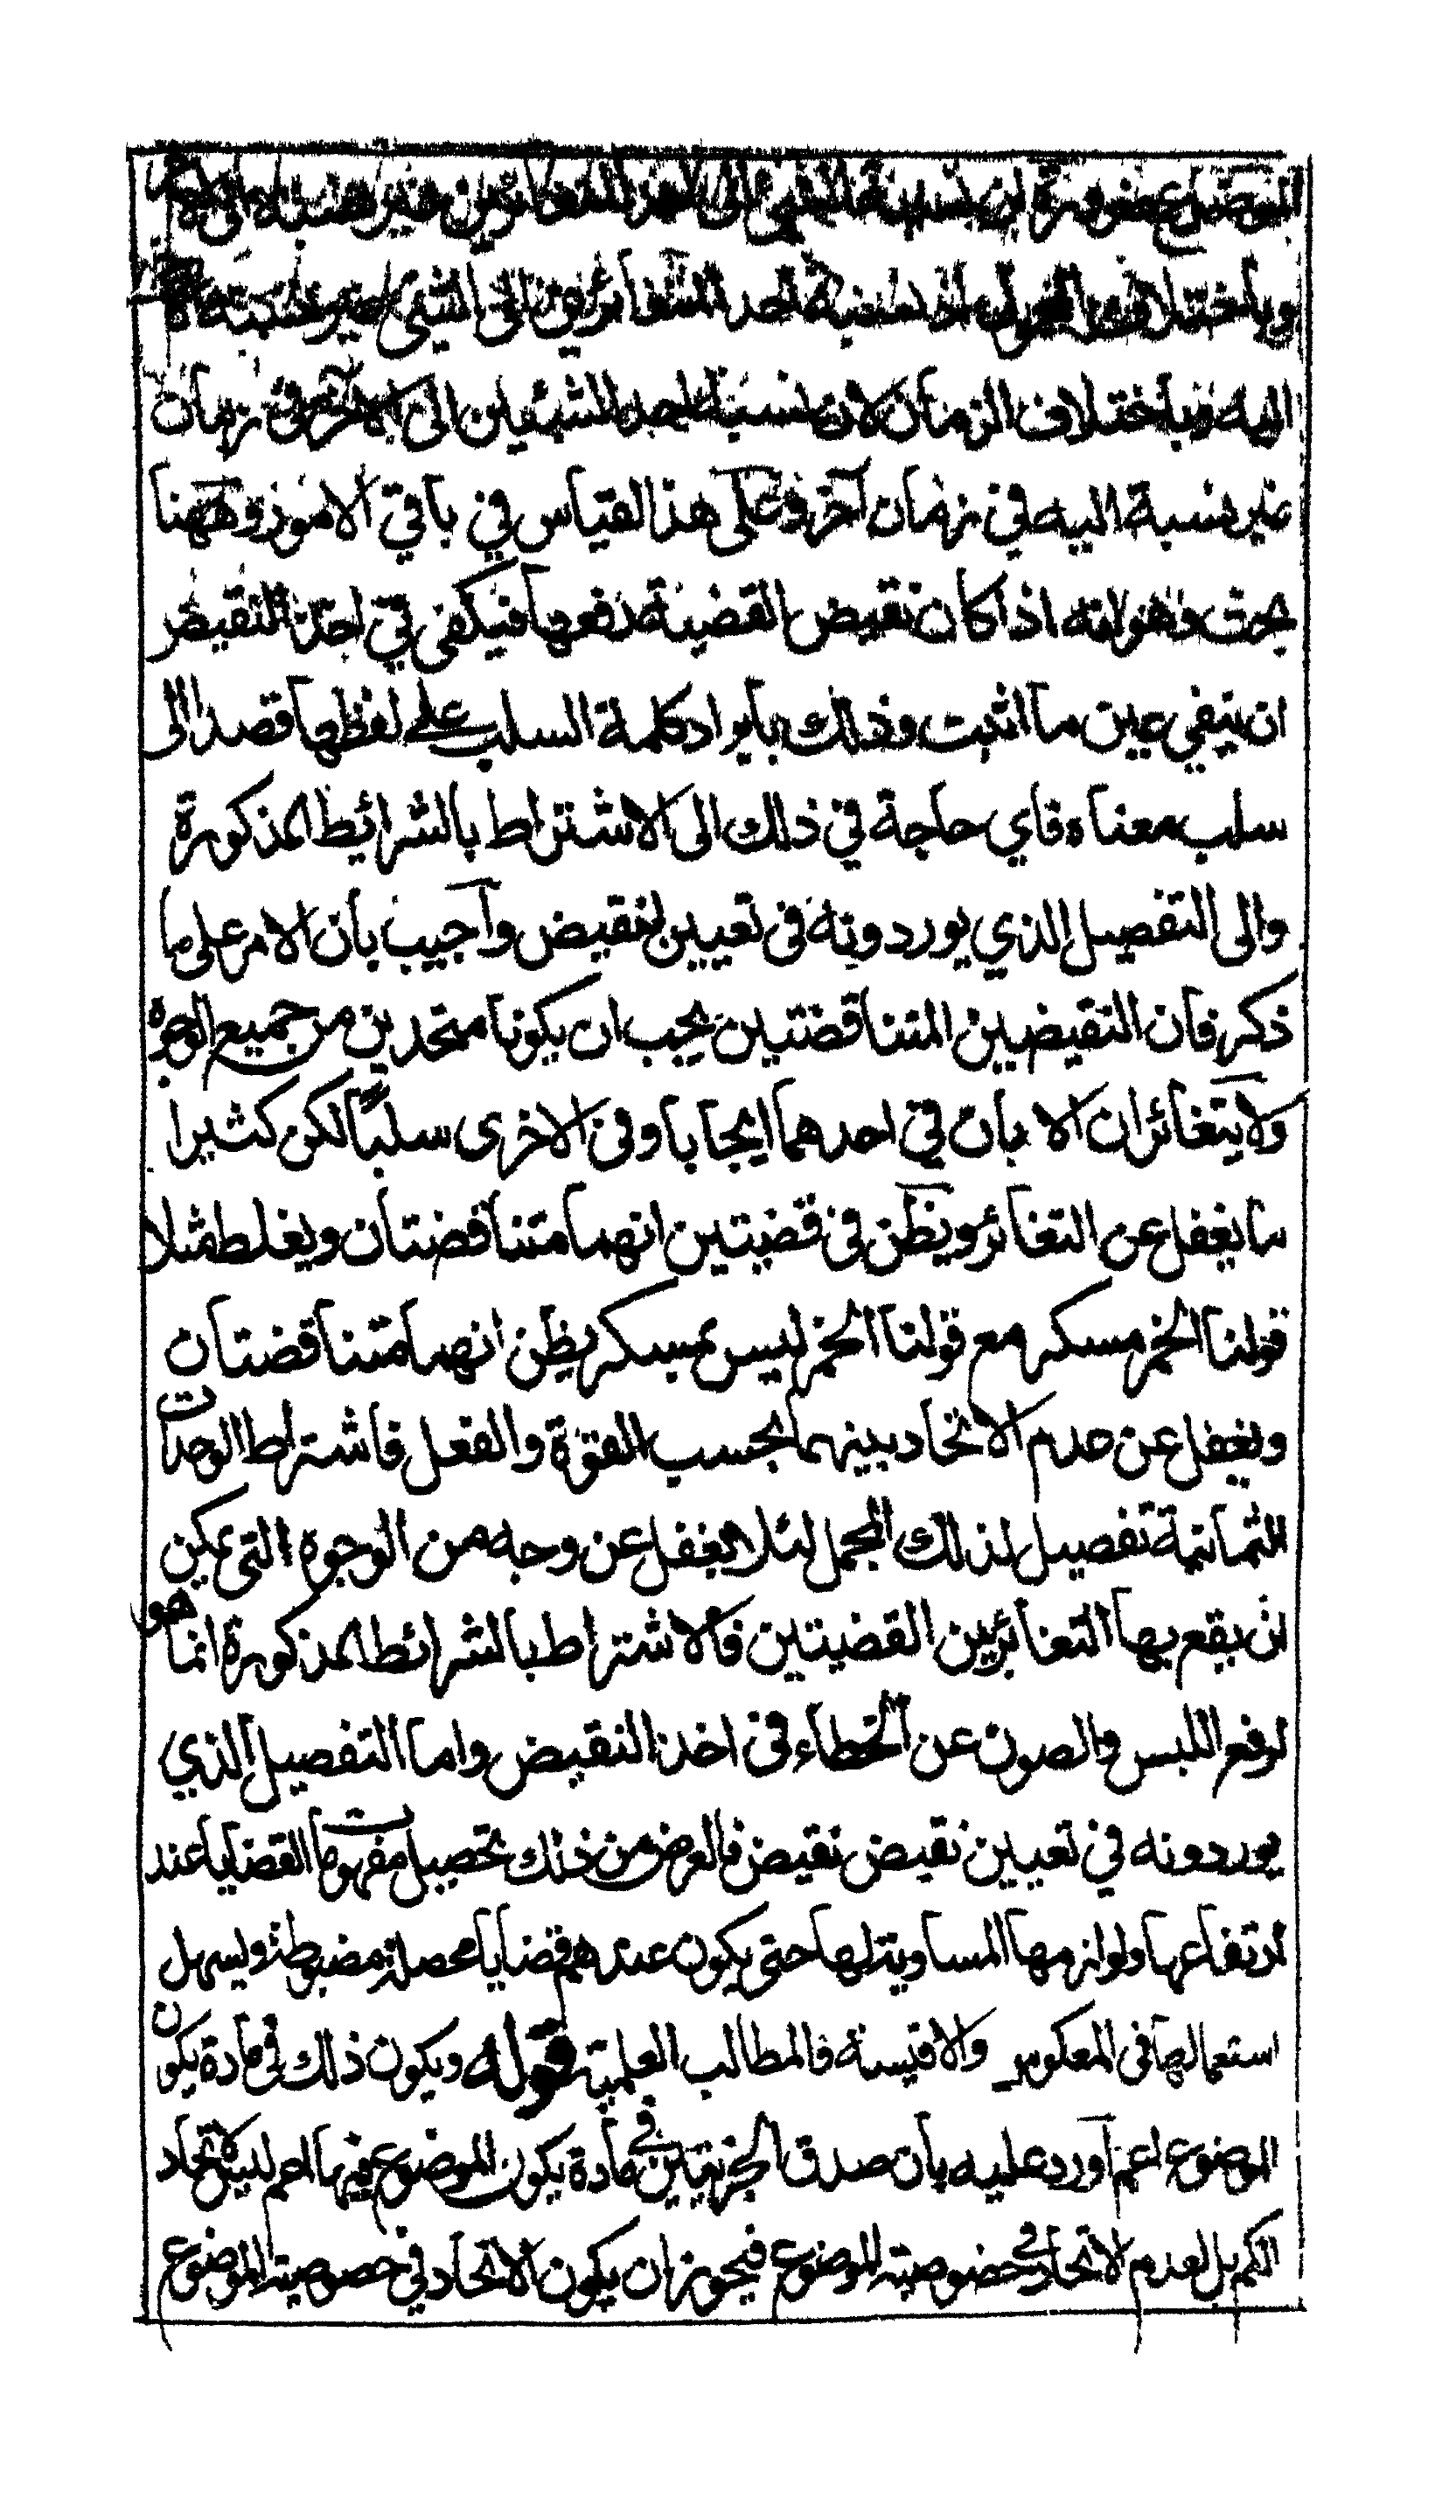 الموضوع ضرورة ان نسبة الشيء الى احد المتغائرين غير نسبته الى الآخر
وباختلاف المحمول اذ نسبة احد المتغائرين الى الشيء غير نسبة الآخر
اليه وباختلاف الزمان لان نسبة احد الشيئين الى الآخر في زمان
غير نسبة اليه في زمان آخر وعلى هذا القياس في باقي الامور وههنا
بحث وهو انه اذا كان نقيض القضية رفعها فيكفى في اخذ النقيض
ان ينفي عين ما اثبت وذلك بايراد كلمة السلب على لفظها قصدا الى
سلب معناه فاي حاجة في ذلك الى الاشتراط بالشرائط المذكورة
والى التفصيل الذي يوردونه في تعيين نقيض نقيض وآجيب بان الامر على ما
ذكر فان النقيضين المتناقضتين يجب ان يكونا متحدين من جميع الوجوه
ولا يتغائران الا بان في احدهما ايجابا وفي الاخرى سلبا لكن كثيرا
ما يغفل عن التغائر ويظن في قضيتين انهما متناقضتان ويغلط مثلا
قولنا الخمر مسكر مع قولنا الخمر ليس بمسكر يظن انهما متناقضتان
ويغفل عن عدم الاتحاد بينهما بحسب القوة والفعل فاشتراط الوحدات
الثمانية تفصيل لذلك المجمل لئلا يغفل عن وجه من الوجوه التي يمكن
ان يقع بها التغائر بين القضيتين فالاشتراط بالشرائط المذكورة انما هو
لرفع اللبس والصون عن الخطاء في اخذ النقيض واما التفصيل الذي
يوردونه في تعيين نقيض نقيض فالغرض من ذلك تحصيل مفهومات القضايا عند
ارتفاعها ولوازمها المساوية لها حتى يكون عندهم قضايا محصلة مضبوطة ويسهل
استعمالها في العكوس والاقيسة والمطالب العلمية قوله ويكون ذلك في مادة يكون
الموضوع اعم آورد عليه بان صدق الجزئيتين في مادة يكون الموضوع فيها اعم ليس لاتحاد
الكم بل لعدم الاتحاد في خصوصية الموضوع فيجوز ان يكون الاتحاد في خصوصية الموضوع